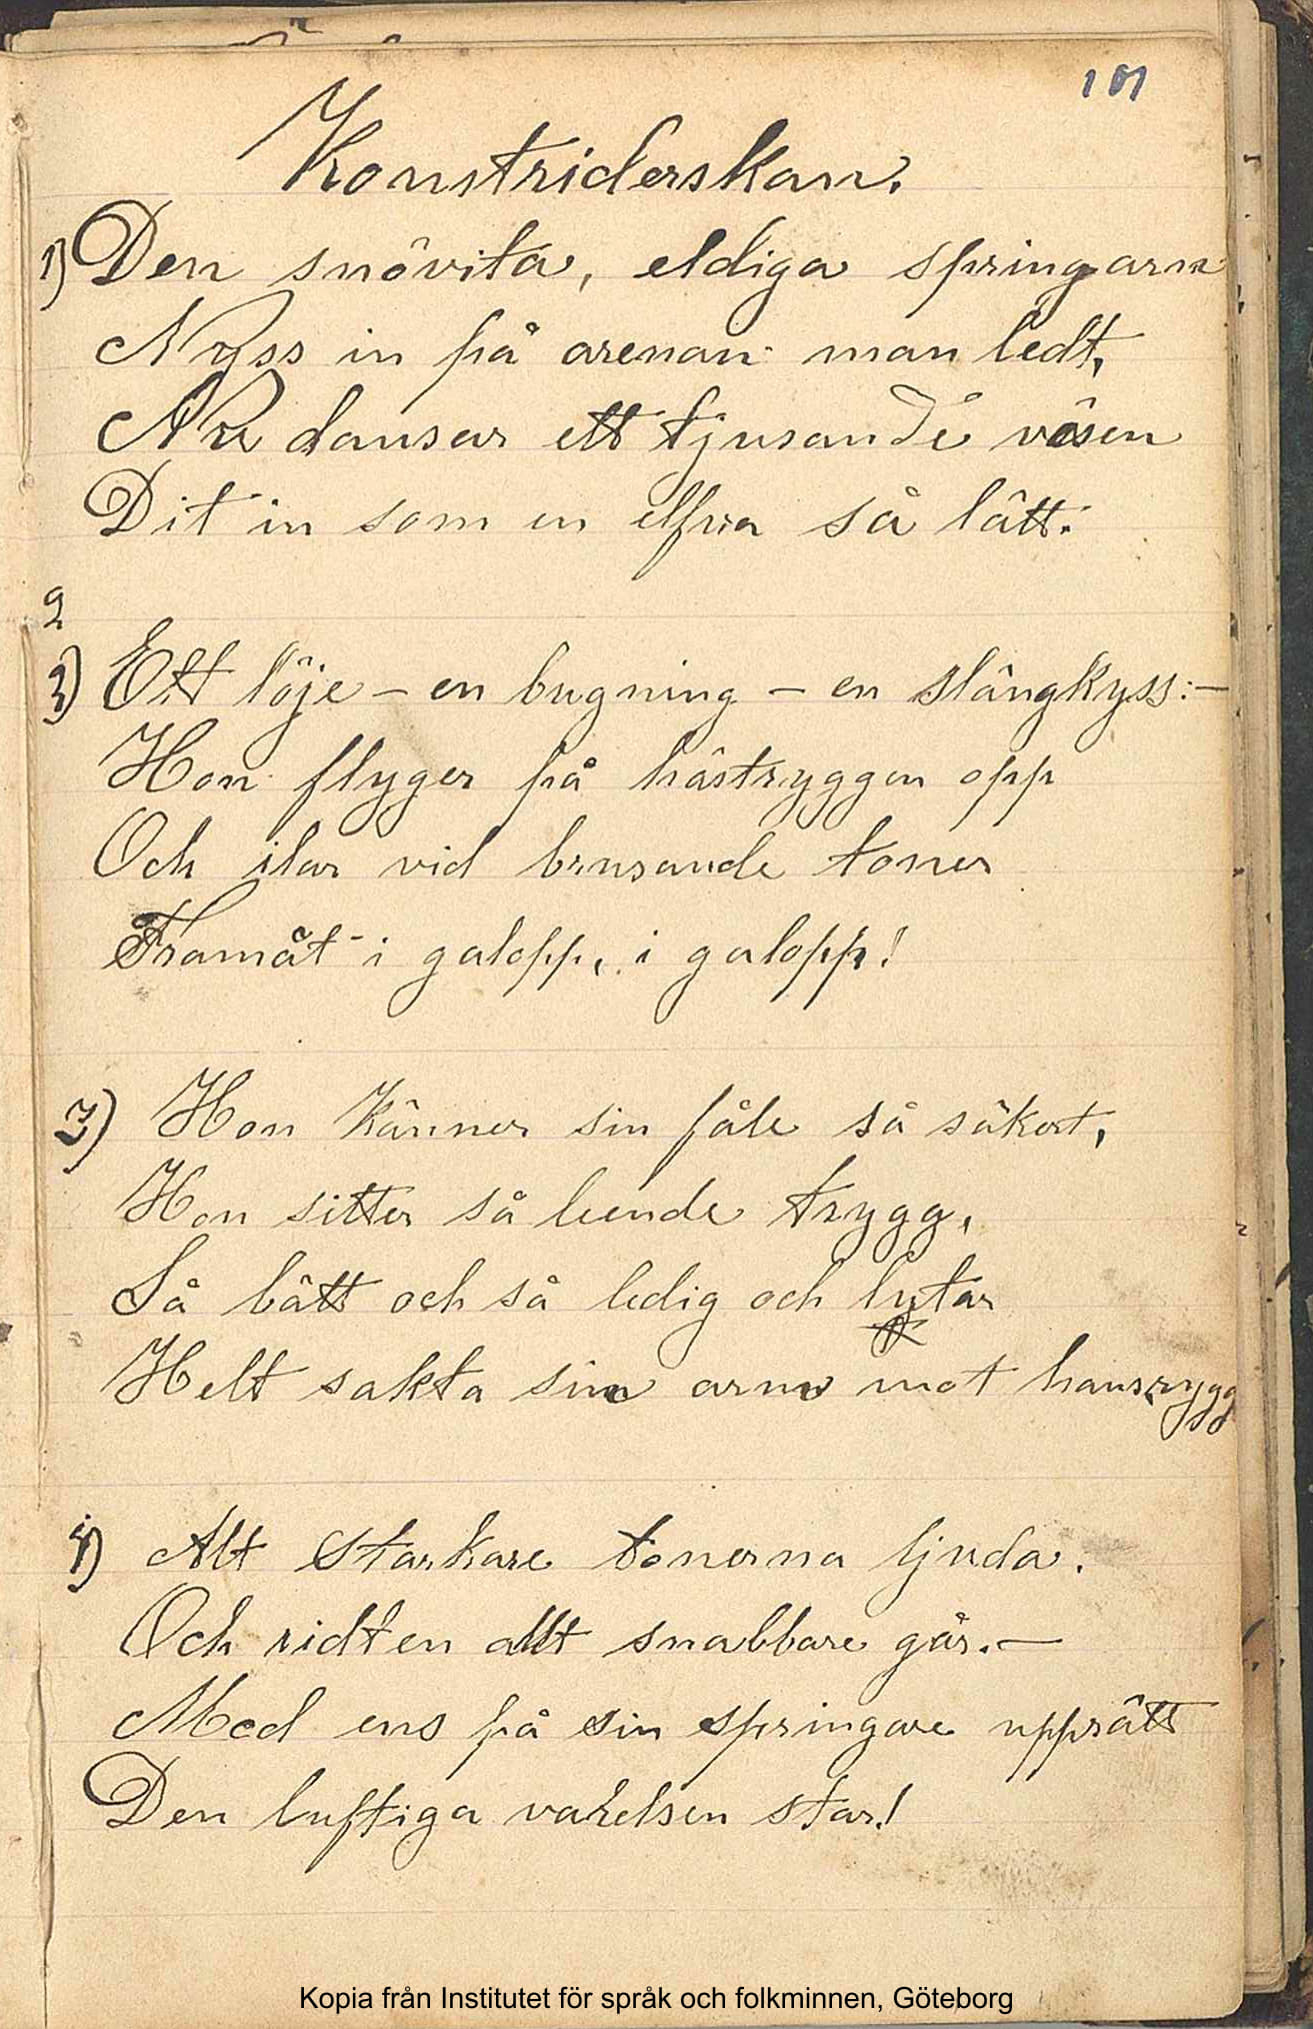 101
Konstriderskan.
1) Den snövita, eldiga springarn
Nyss in på arenan man ledt,
Nu dansar ett tjusande väsen
Dit in som en elfva så lätt.
2
2) Ett löje – en bugning – en slängkyss: –
Hon flyger på hästryggen opp
Och ilar vid brusande toner
Framåt i galopp, i galopp!
3) Hon känner sin fåle så säkert,
Hon sitter så leende trygg,
Så lätt och så ledig och lutar
Helt sakta sin arm mot hans rygg
4) Alt starkare tonerna ljuda.
Och ridten allt snabbare går. –
Med ens på sin springare upprätt
Den luftiga varelsen står!
Kopia från Institutet för språk och folkminnen, Göteborg